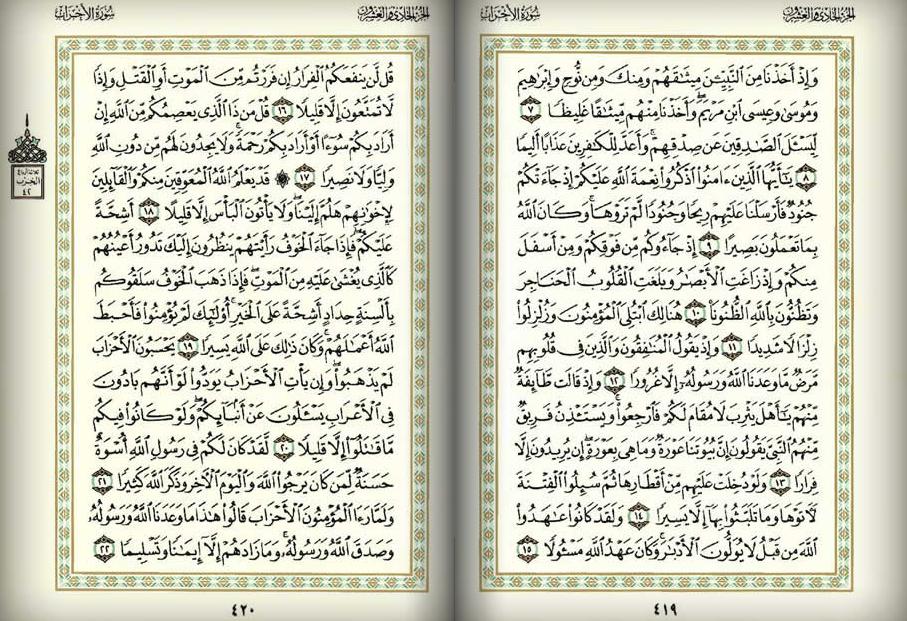 الجزء الحادي والعشرون
سورة الأحزاب
وَإِذْ أَخَذْنَا مِنَ ٱلنَّبِيِّۦنَ مِيثَٰقَهُمْ وَمِنكَ وَمِن نُّوحٍ وَإِبْرَٰهِيمَ
وَمُوسَىٰ وَعِيسَى ٱبْنِ مَرْيَمَ ۖ وَأَخَذْنَا مِنْهُم مِّيثَٰقًا غَلِيظًا ٧
لِّيَسْـَٔلَ ٱلصَّٰدِقِينَ عَن صِدْقِهِمْ ۚ وَأَعَدَّ لِلْكَٰفِرِينَ عَذَابًا أَلِيمًا
٨ يَٰٓأَيُّهَا ٱلَّذِينَ ءَامَنُوا۟ ٱذْكُرُوا۟ نِعْمَةَ ٱللَّهِ عَلَيْكُمْ إِذْ جَآءَتْكُمْ
جُنُودٌ فَأَرْسَلْنَا عَلَيْهِمْ رِيحًا وَجُنُودًا لَّمْ تَرَوْهَا ۚ وَكَانَ ٱللَّهُ
بِمَا تَعْمَلُونَ بَصِيرًا ٩ إِذْ جَآءُوكُم مِّن فَوْقِكُمْ وَمِنْ أَسْفَلَ
مِنكُمْ وَإِذْ زَاغَتِ ٱلْأَبْصَٰرُ وَبَلَغَتِ ٱلْقُلُوبُ ٱلْحَنَاجِرَ
وَتَظُنُّونَ بِٱللَّهِ ٱلظُّنُونَا۠ ١٠ هُنَالِكَ ٱبْتُلِىَ ٱلْمُؤْمِنُونَ وَزُلْزِلُوا۟
زِلْزَالًا شَدِيدًا ١١ وَإِذْ يَقُولُ ٱلْمُنَٰفِقُونَ وَٱلَّذِينَ فِى قُلُوبِهِم
مَّرَضٌ مَّا وَعَدَنَا ٱللَّهُ وَرَسُولُهُۥٓ إِلَّا غُرُورًا ١٢ وَإِذْ قَالَت طَّآئِفَةٌ
مِّنْهُمْ يَٰٓأَهْلَ يَثْرِبَ لَا مُقَامَ لَكُمْ فَٱرْجِعُوا۟ ۚ وَيَسْتَـْٔذِنُ فَرِيقٌ
مِّنْهُمُ ٱلنَّبِىَّ يَقُولُونَ إِنَّ بُيُوتَنَا عَوْرَةٌ وَمَا هِىَ بِعَوْرَةٍ ۖ إِن يُرِيدُونَ إِلَّا
فِرَارًا ١٣ وَلَوْ دُخِلَتْ عَلَيْهِم مِّنْ أَقْطَارِهَا ثُمَّ سُئِلُوا۟ ٱلْفِتْنَةَ
لَءَاتَوْهَا وَمَا تَلَبَّثُوا۟ بِهَآ إِلَّا يَسِيرًا ١٤ وَلَقَدْ كَانُوا۟ عَٰهَدُوا۟
ٱللَّهَ مِن قَبْلُ لَا يُوَلُّونَ ٱلْأَدْبَٰرَ ۚ وَكَانَ عَهْدُ ٱللَّهِ مَسْـُٔولًا ١٥
٤١٩
الجزء الحادي والعشرون
سورة الأحزاب
قُل لَّن يَنفَعَكُمُ ٱلْفِرَارُ إِن فَرَرْتُم مِّنَ ٱلْمَوْتِ أَوِ ٱلْقَتْلِ وَإِذًا
لَّا تُمَتَّعُونَ إِلَّا قَلِيلًا ١٦ قُلْ مَن ذَا ٱلَّذِى يَعْصِمُكُم مِّنَ ٱللَّهِ إِنْ
أَرَادَ بِكُمْ سُوٓءًا أَوْ أَرَادَ بِكُمْ رَحْمَةً ۚ وَلَا يَجِدُونَ لَهُم مِّن دُونِ ٱللَّهِ
وَلِيًّا وَلَا نَصِيرًا ١٧ ۞ قَدْ يَعْلَمُ ٱللَّهُ ٱلْمُعَوِّقِينَ مِنكُمْ وَٱلْقَآئِلِينَ
لِإِخْوَٰنِهِمْ هَلُمَّ إِلَيْنَا ۖ وَلَا يَأْتُونَ ٱلْبَأْسَ إِلَّا قَلِيلًا ١٨ أَشِحَّةً
عَلَيْكُمْ ۖ فَإِذَا جَآءَ ٱلْخَوْفُ رَأَيْتَهُمْ يَنظُرُونَ إِلَيْكَ تَدُورُ أَعْيُنُهُمْ
كَٱلَّذِى يُغْشَىٰ عَلَيْهِ مِنَ ٱلْمَوْتِ ۖ فَإِذَا ذَهَبَ ٱلْخَوْفُ سَلَقُوكُم
بِأَلْسِنَةٍ حِدَادٍ أَشِحَّةً عَلَى ٱلْخَيْرِ ۚ أُو۟لَٰٓئِكَ لَمْ يُؤْمِنُوا۟ فَأَحْبَطَ
ٱللَّهُ أَعْمَٰلَهُمْ ۚ وَكَانَ ذَٰلِكَ عَلَى ٱللَّهِ يَسِيرًا ١٩ يَحْسَبُونَ ٱلْأَحْزَابَ
لَمْ يَذْهَبُوا۟ ۖ وَإِن يَأْتِ ٱلْأَحْزَابُ يَوَدُّوا۟ لَوْ أَنَّهُم بَادُونَ
فِى ٱلْأَعْرَابِ يَسْـَٔلُونَ عَنْ أَنۢبَآئِكُمْ ۖ وَلَوْ كَانُوا۟ فِيكُم
مَّا قَٰتَلُوٓا۟ إِلَّا قَلِيلًا ٢٠ لَّقَدْ كَانَ لَكُمْ فِى رَسُولِ ٱللَّهِ أُسْوَةٌ
حَسَنَةٌ لِّمَن كَانَ يَرْجُوا۟ ٱللَّهَ وَٱلْيَوْمَ ٱلْءَاخِرَ وَذَكَرَ ٱللَّهَ كَثِيرًا ٢١
وَلَمَّا رَءَا ٱلْمُؤْمِنُونَ ٱلْأَحْزَابَ قَالُوا۟ هَٰذَا مَا وَعَدَنَا ٱللَّهُ وَرَسُولُهُۥ
وَصَدَقَ ٱللَّهُ وَرَسُولُهُۥ ۚ وَمَا زَادَهُمْ إِلَّآ إِيمَٰنًا وَتَسْلِيمًا ٢٢
ثلاثة أرباع
الحزب
٤٢
٤٢٠